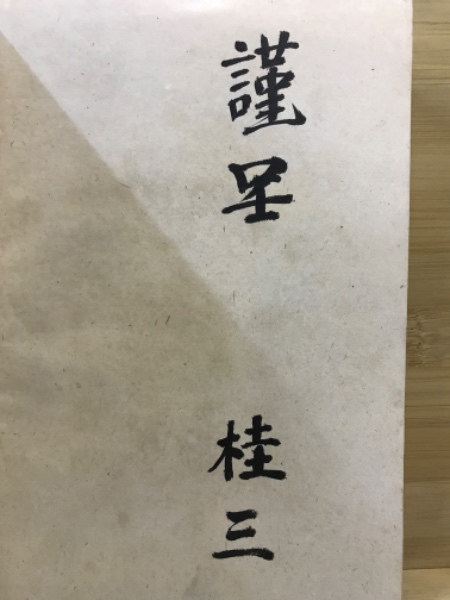 謹呈
桂三